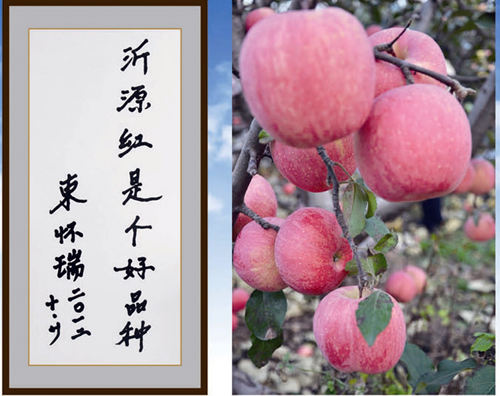 沂源红是个好品种
束怀瑞
二〇一二